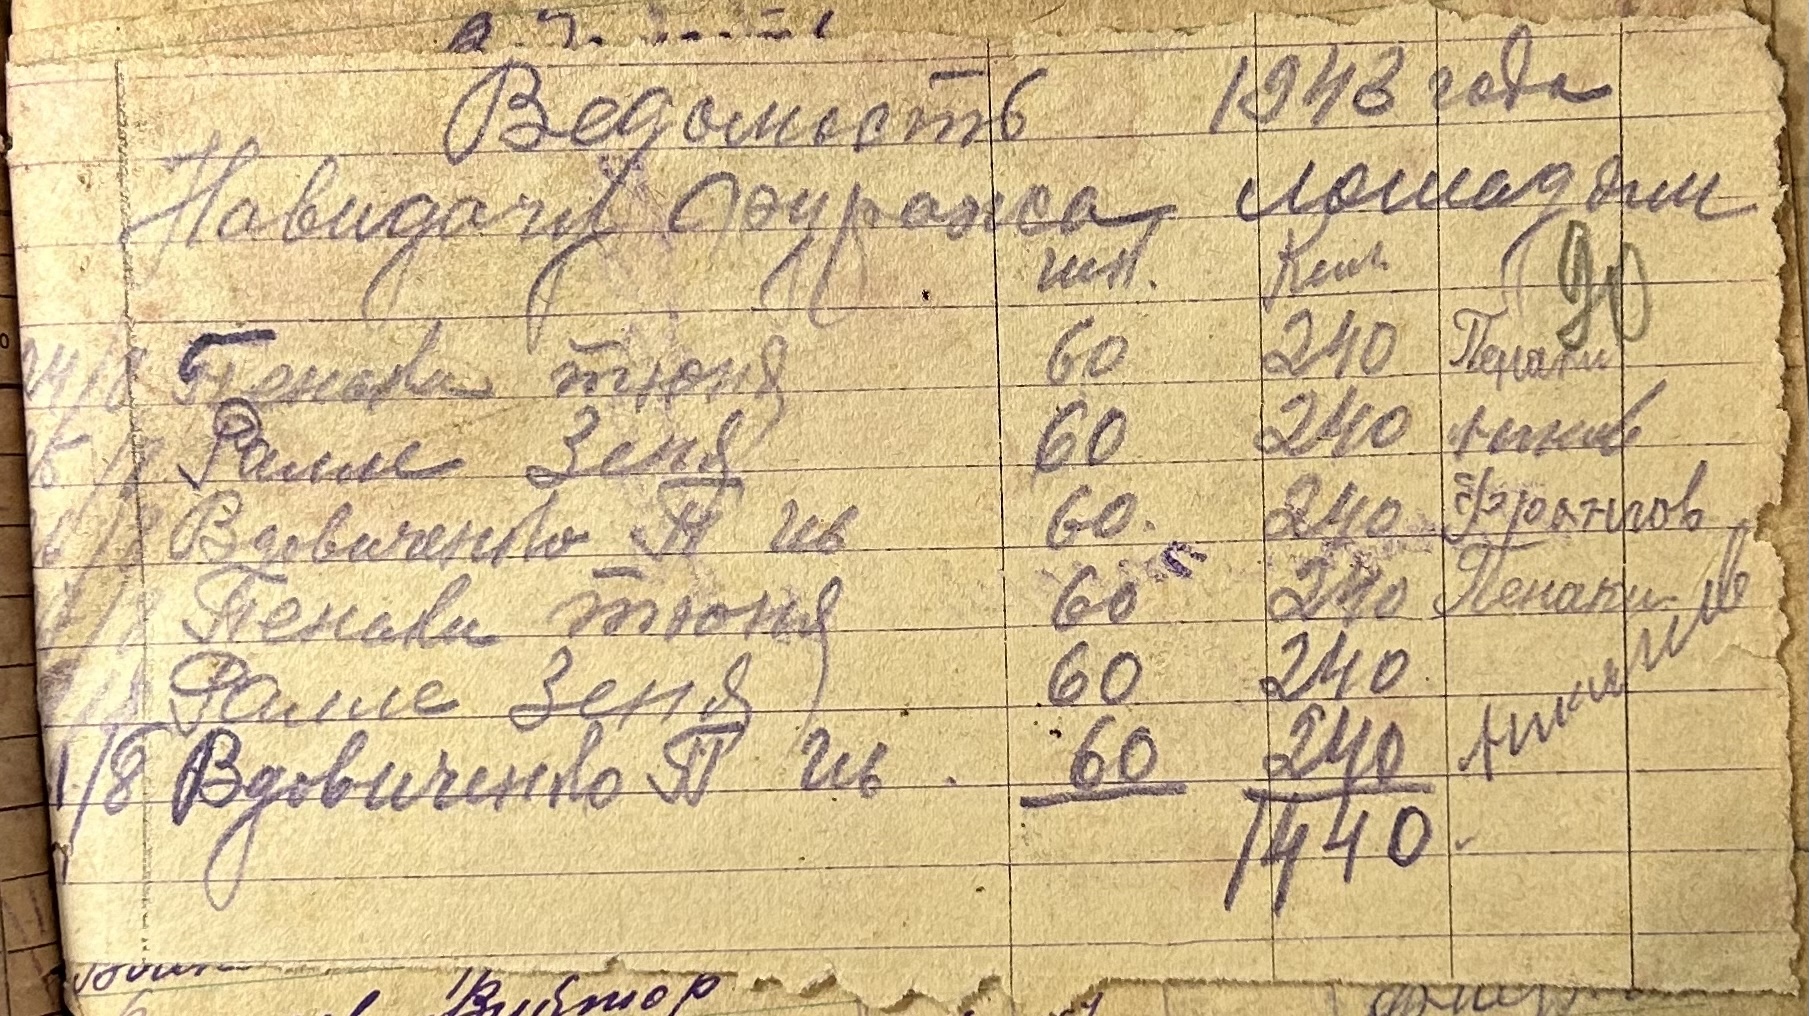 Ведомость 1943 года
Навидачу фуража лошадям
шт. Кил. 90
24/8 Пенаки тюня 60 240 Пенаки
Ралле Зеня 60 240
Вдовиченко П ив 60. 240
Пенаки тюня 60 240 Пенаки
Ралле Зеня 60 240
1/8 Вдовиченко П ив. 60 240
1440
Виктор